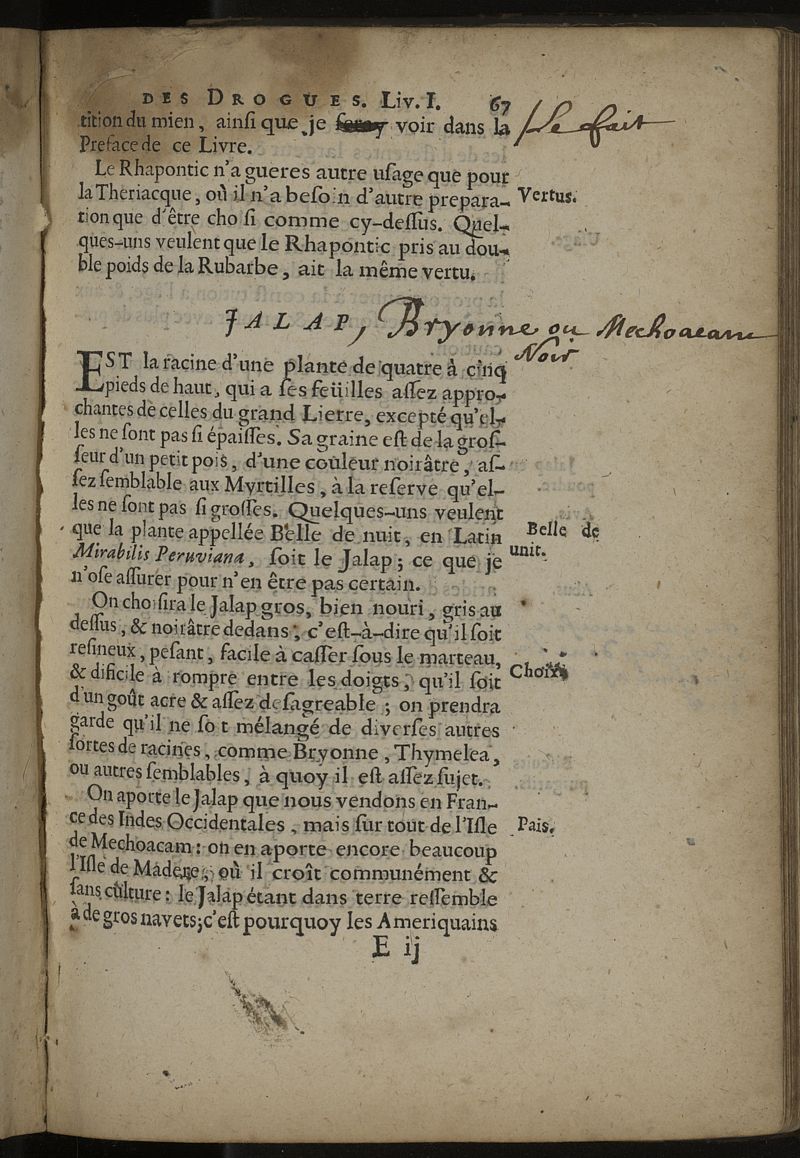 DES DROGUES. Liv. I. 67
tition du mien, ainſi que je feray voir dans la / le fait
Preface de ce Livre.
Le Rhapontic n'a gueres autre uſage que pour
la Theriacque, où il n'a beſoin d'autre prepara- Vertus.
tion que d'être choſi comme cy-deſſus. Quel-
ques-uns veulent que le Rhapontic pris au dou-
ble poids de la Rubarbe, ait la même vertu.
JALAP, Bryonne ou Mechoacam
Noir
EST la racine d'une plante de quatre à cinq
pieds de haut, qui a ſes feüilles aſſez appro-
chantes de celles du grand Lierre, excepté qu'el-
les ne ſont pas ſi épaiſſes. Sa graine eſt de la groſ-
ſeur d'un petit pois, d'une couleur noirâtre, aſ-
ſez ſemblable aux Myrtilles, à la reſerve qu'el-
les ne ſont pas ſi groſſes. Quelques-uns veulent
que la plante appellée Belle de nuit, en Latin Belle de
Mirabilis Peruviana, ſoit le Jalap; ce que je unit.
n'oſe aſſurer pour n'en être pas certain.
On choiſira le Jalap gros, bien nouri, gris au
deſſus, & noirâtre dedans, c'eſt-à-dire qu'il ſoit
reſineux, peſant, facile à caſſer ſous le marteau,
& dificile à rompre entre les doigts, qu'il ſoit Choix
d'un goût acre & aſſez deſagreable; on prendra
garde qu'il ne ſo t mélangé de diverſes autres
ſortes de racines, comme Bryonne, Thymelea,
ou autres ſemblables, à quoy il eſt aſſez ſujet.
On aporte le Jalap que nous vendons en Fran-
ce des Indes Occidentales, mais ſur tout de l'Iſle Païs.
de Mechoacam: on en aporte encore beaucoup
l'Iſle de Madere, où il croît communément &
ſans culture: le Jalap étant dans terre reſſemble
à de gros navets; c'eſt pourquoy les Ameriquains
E ij